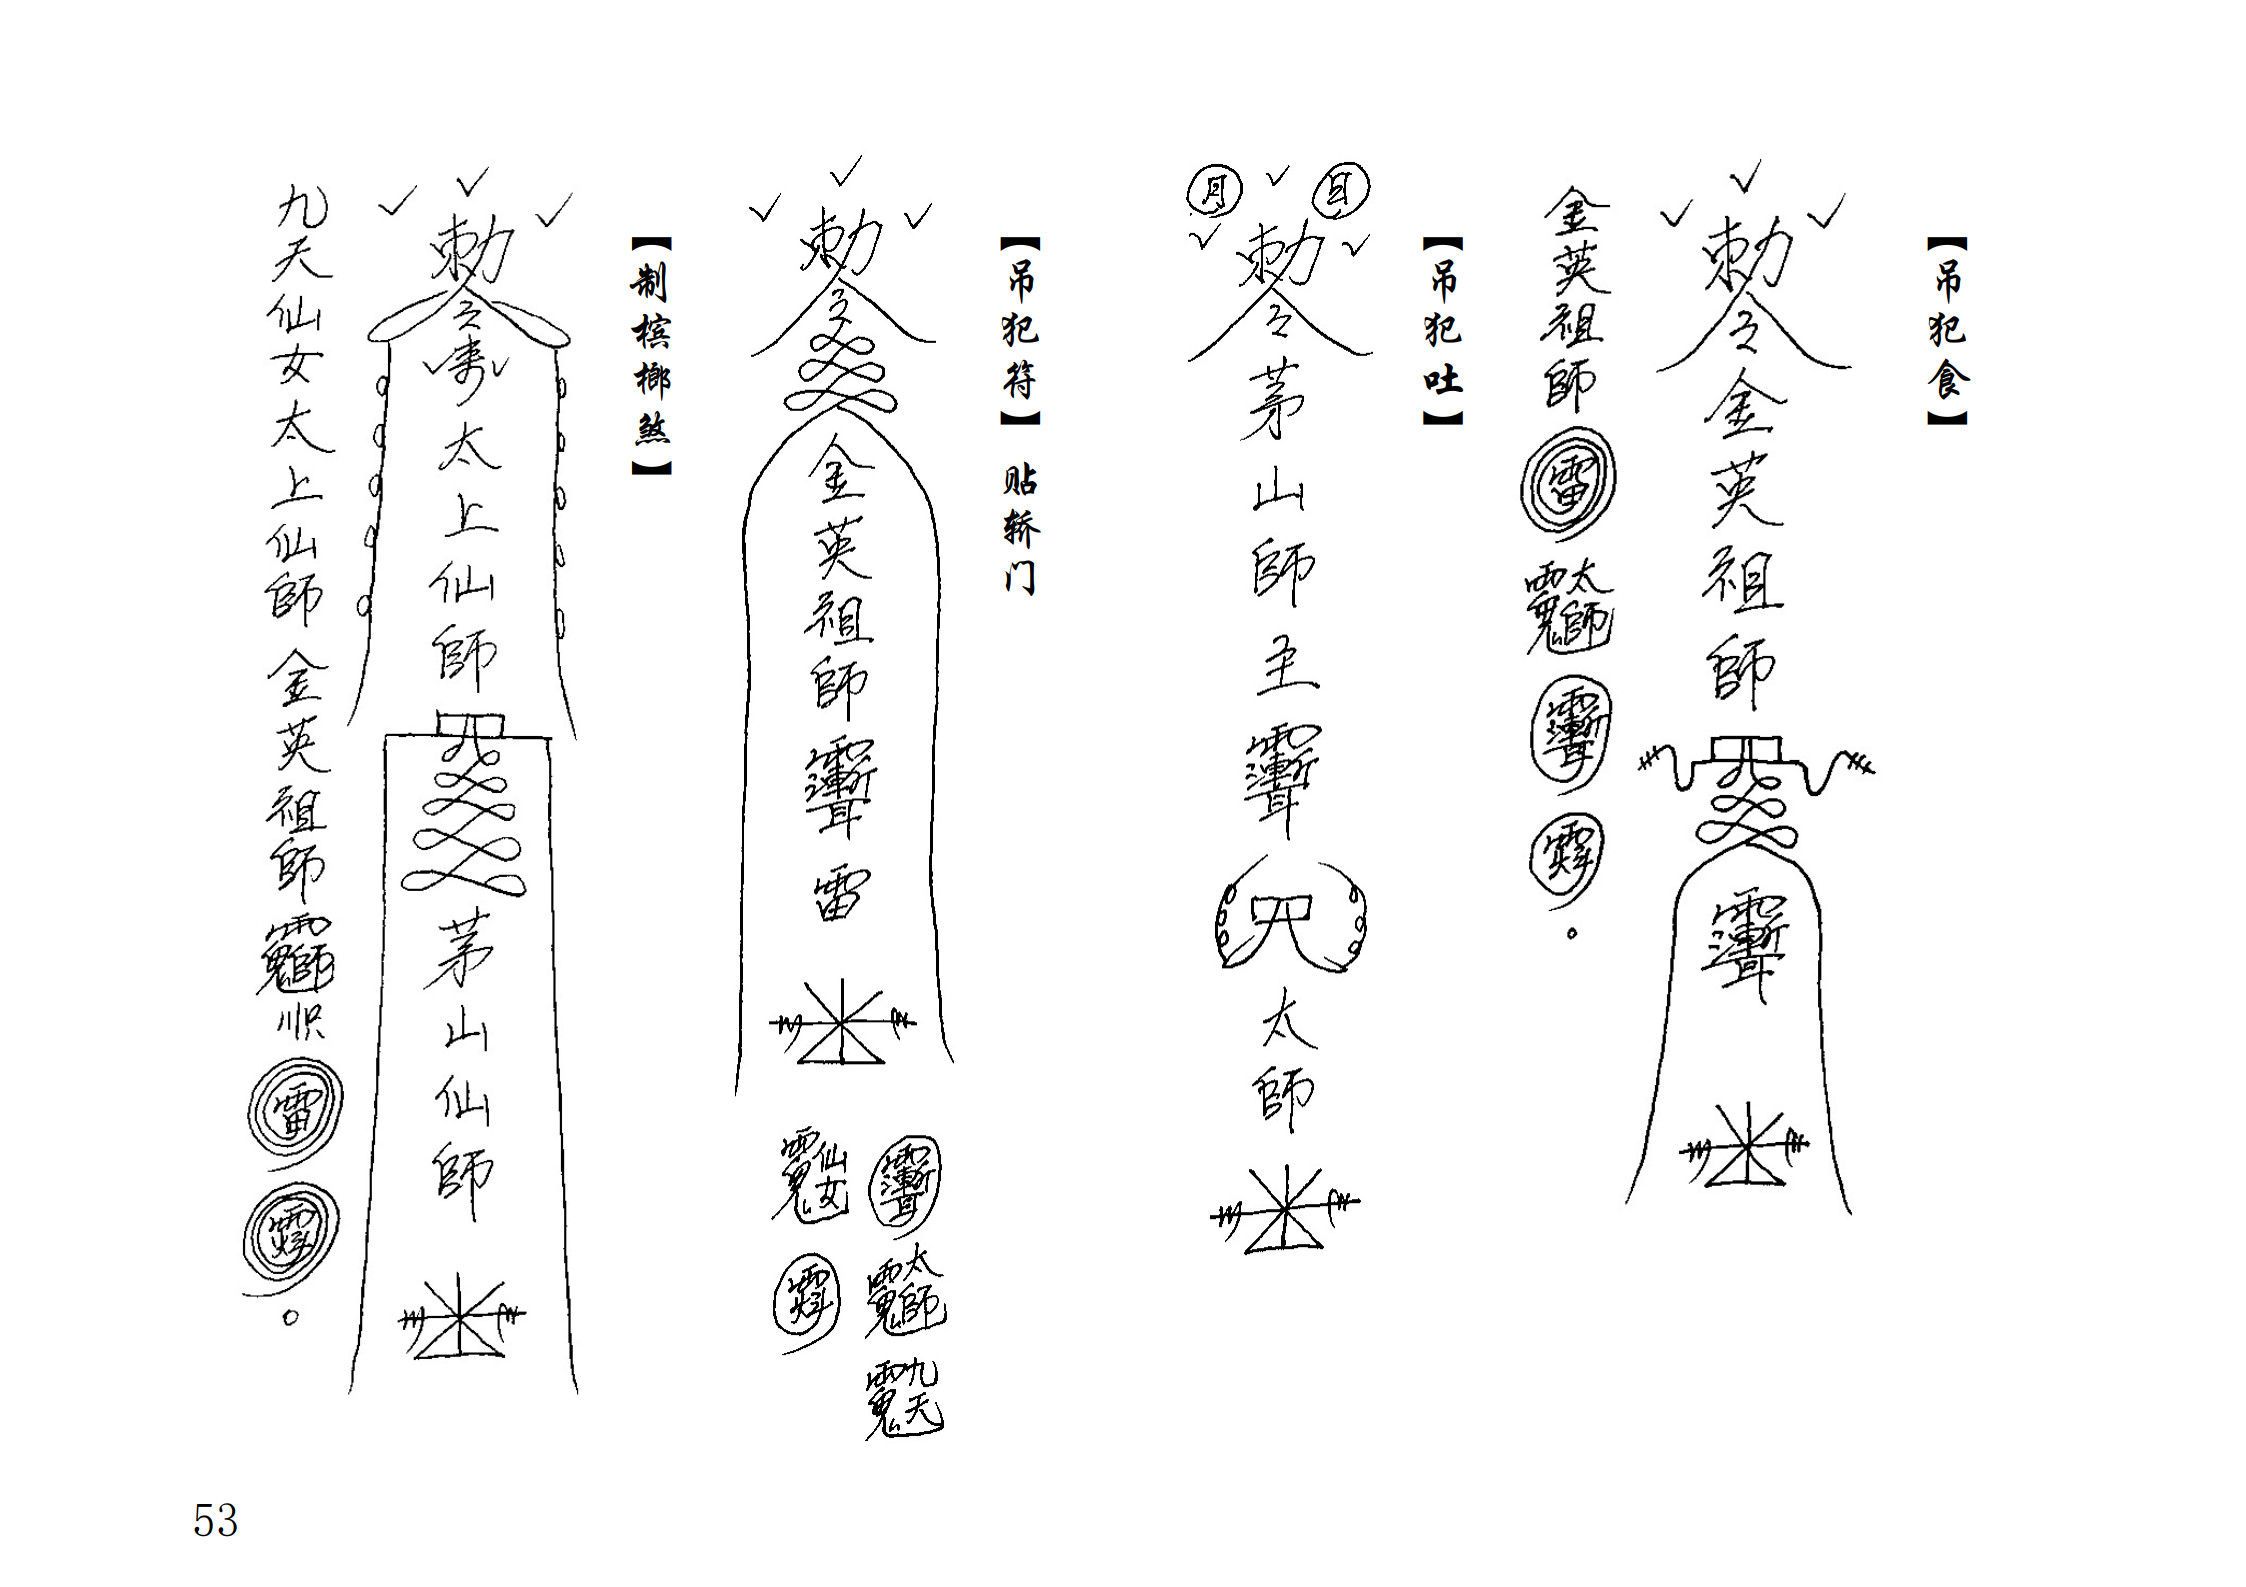 【吊犯食】
勅令金英祖師
金英祖師
雷
太師
【吊犯吐】
月
日
勅令茅山師主
太師
【吊犯符】贴轿门
勅令金英祖師
雷
仙女
太師
九天
【制槟榔煞】
勅令
太上仙師
茅山仙師
九天仙女太上仙師金英祖師
雷
53